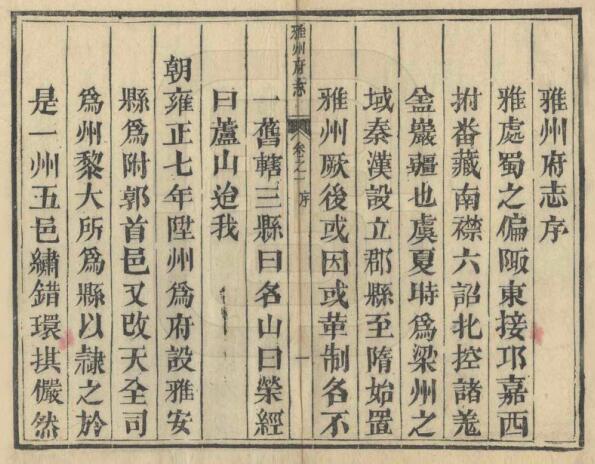 雅州府志序
雅處蜀之偏陬東接邛嘉西
拊番藏南襟六詔北控諸羗
金巖疆也虞夏時為梁州之
域秦漢設立郡縣至隋始置
雅州厥後或因或革制名不
雅州府志
卷之一 序
一
一舊轄三縣曰名山曰榮經
曰蘆山迨我
朝雍正七年陞州為府設雅安
縣為附郭首邑又改天全司
為州黎大所為縣以隷之於
是一州五邑繡錯環拱儼然